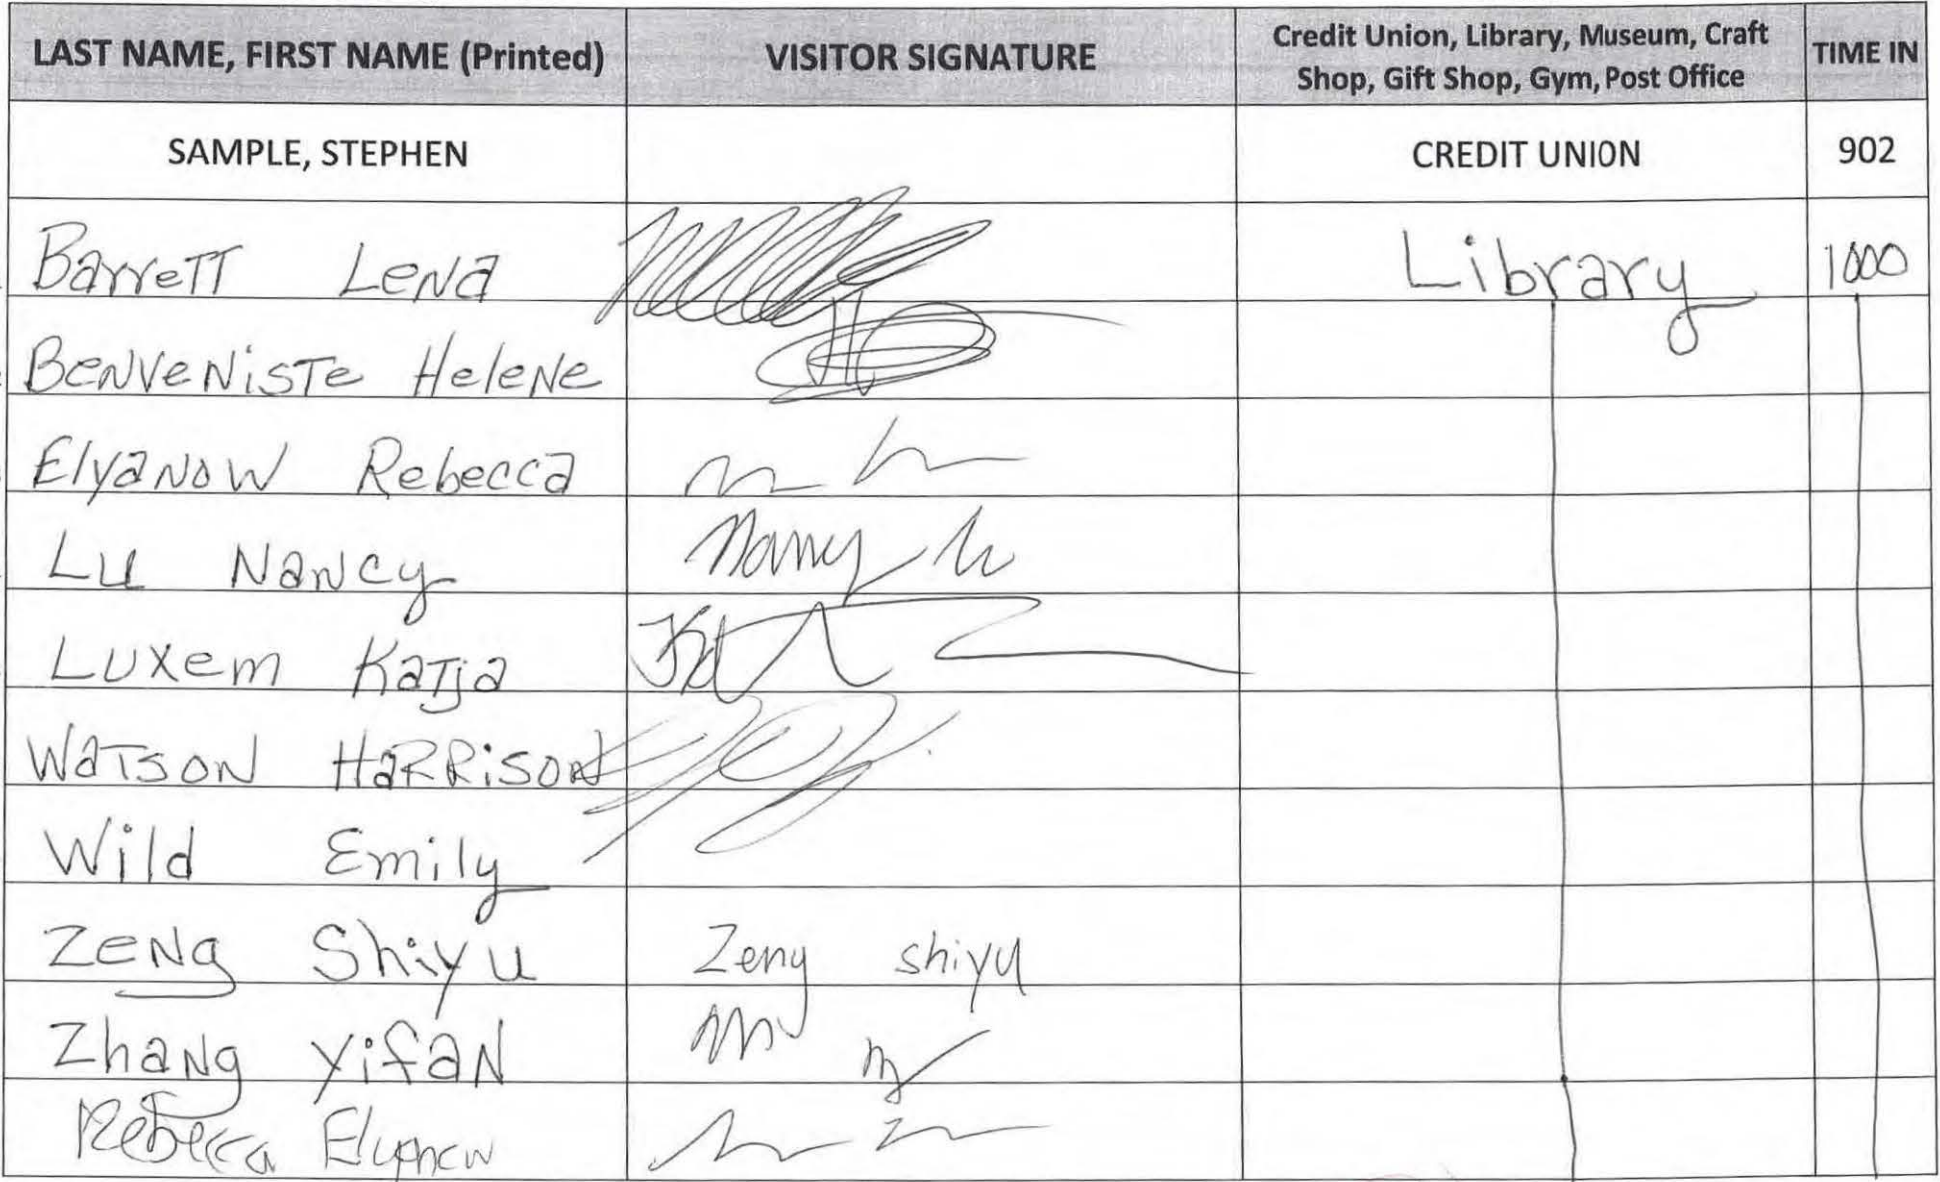 LAST NAME, FIRST NAME (Printed) VISITOR SIGNATURE Credit Union, Library, Museum, Craft Shop, Gift Shop, Gym, Post Office TIME IN
SAMPLE, STEPHEN CREDIT UNION 902
Barrett Lena Library 1000
Benveniste Helene
Elyanow Rebecca
Lu Nancy Nancy Lu
Luxem Katja
Watson Harrison
Wild Emily
Zeng Shiyu Zeng shiyu
Zhang Yifan
Rebecca Elyanow